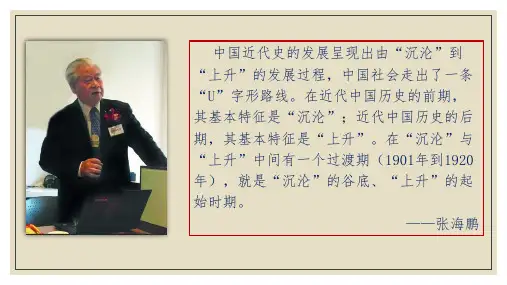 中国近代史的发展呈现出由“沉沦”到
“上升”的发展过程，中国社会走出了一条
“U”字形路线。在近代中国历史的前期，
其基本特征是“沉沦”；近代中国历史的后
期，其基本特征是“上升”。在“沉沦”与
“上升”中间有一个过渡期（1901年到1920
年），就是“沉沦”的谷底、“上升”的起
始时期。
——张海鹏